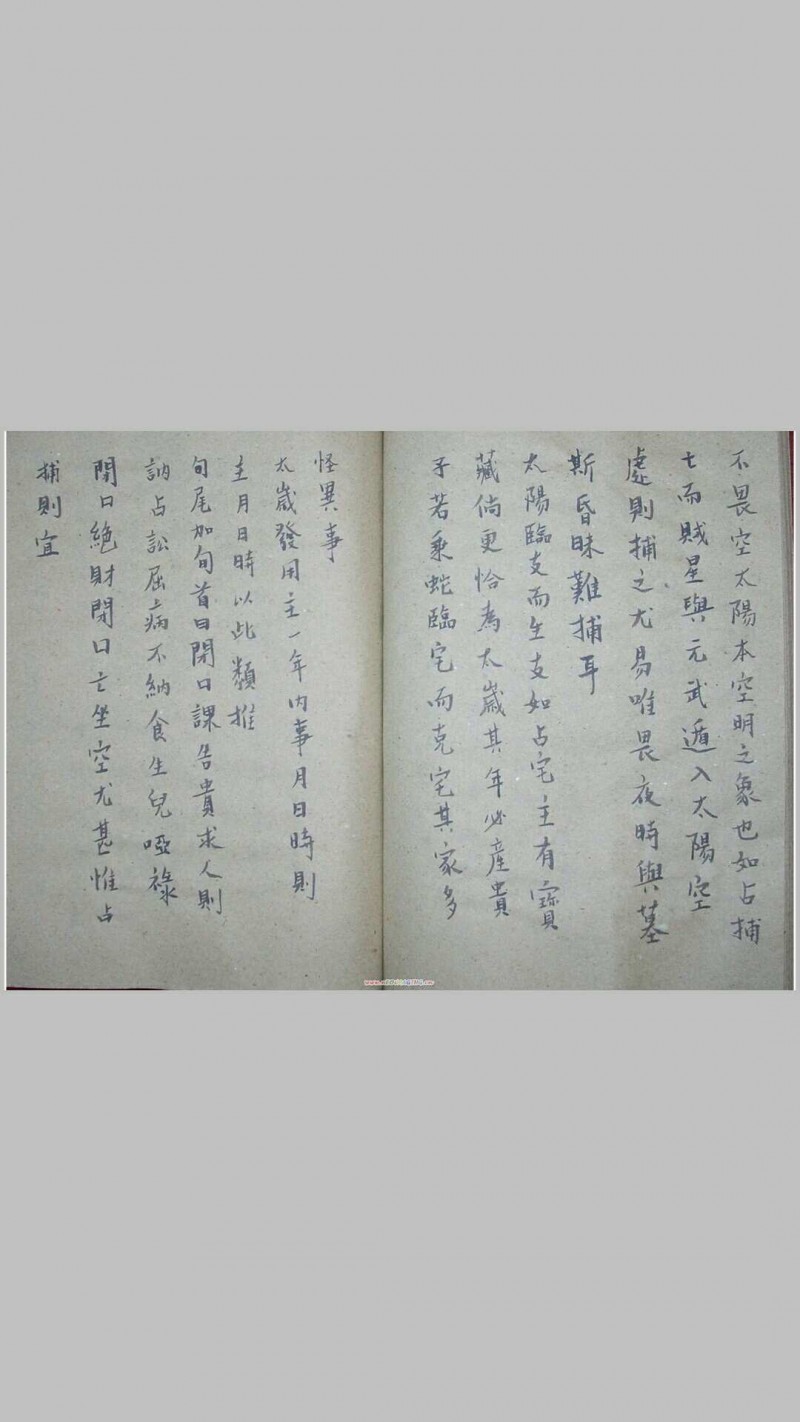 不畏空太陽本空明之象也如占捕
亡而賊星與元武遁入太陽空
處則捕之尤易唯畏夜時與墓
斯昏昧難捕耳
太陽臨支而生支如占宅主有寶
藏倘更恰為太歲其年必產貴
子若乘蛇臨宅而克宅其家多
怪異事
太歲發用主一年內事月日時則
主月日時以此類推
旬尾加旬首曰閉口課告貴求人則
訥占訟屈病不納食生兒啞祿
閉口絕財閉口亡坐空尤甚惟占
捕則宜